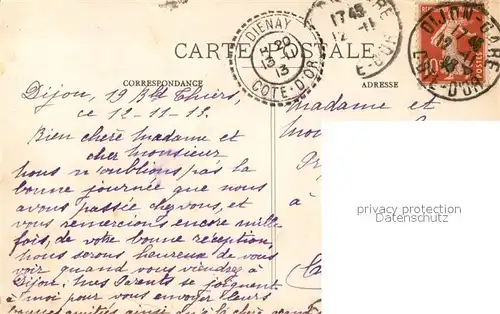 CARTE POSTALE
DIENAY
8 20
13-11
13
COTE-D'OR
17 45
12-11
E-D'OR
DIJON-GARE
17 45
12-11
COTE-D'OR
10
POSTES
CORRESPONDANCE
ADRESSE
Dijon, 19 Bld Thiers,
ce 12-11-13.
Bien chère Madame et
cher Monsieur
Nous n'oublions pas la
bonne journée que nous
avons passée chez vous, et
vous remercions encore mille
fois, de votre bonne réception,
Nous serons heureux de vous
voir quand vous viendrez à
Dijon; Mes Parents se joignent
à moi pour vous envoyer leurs
bonnes amitiés ainsi qu'à la chère
Madame et
à
privacy protection
datenschutz